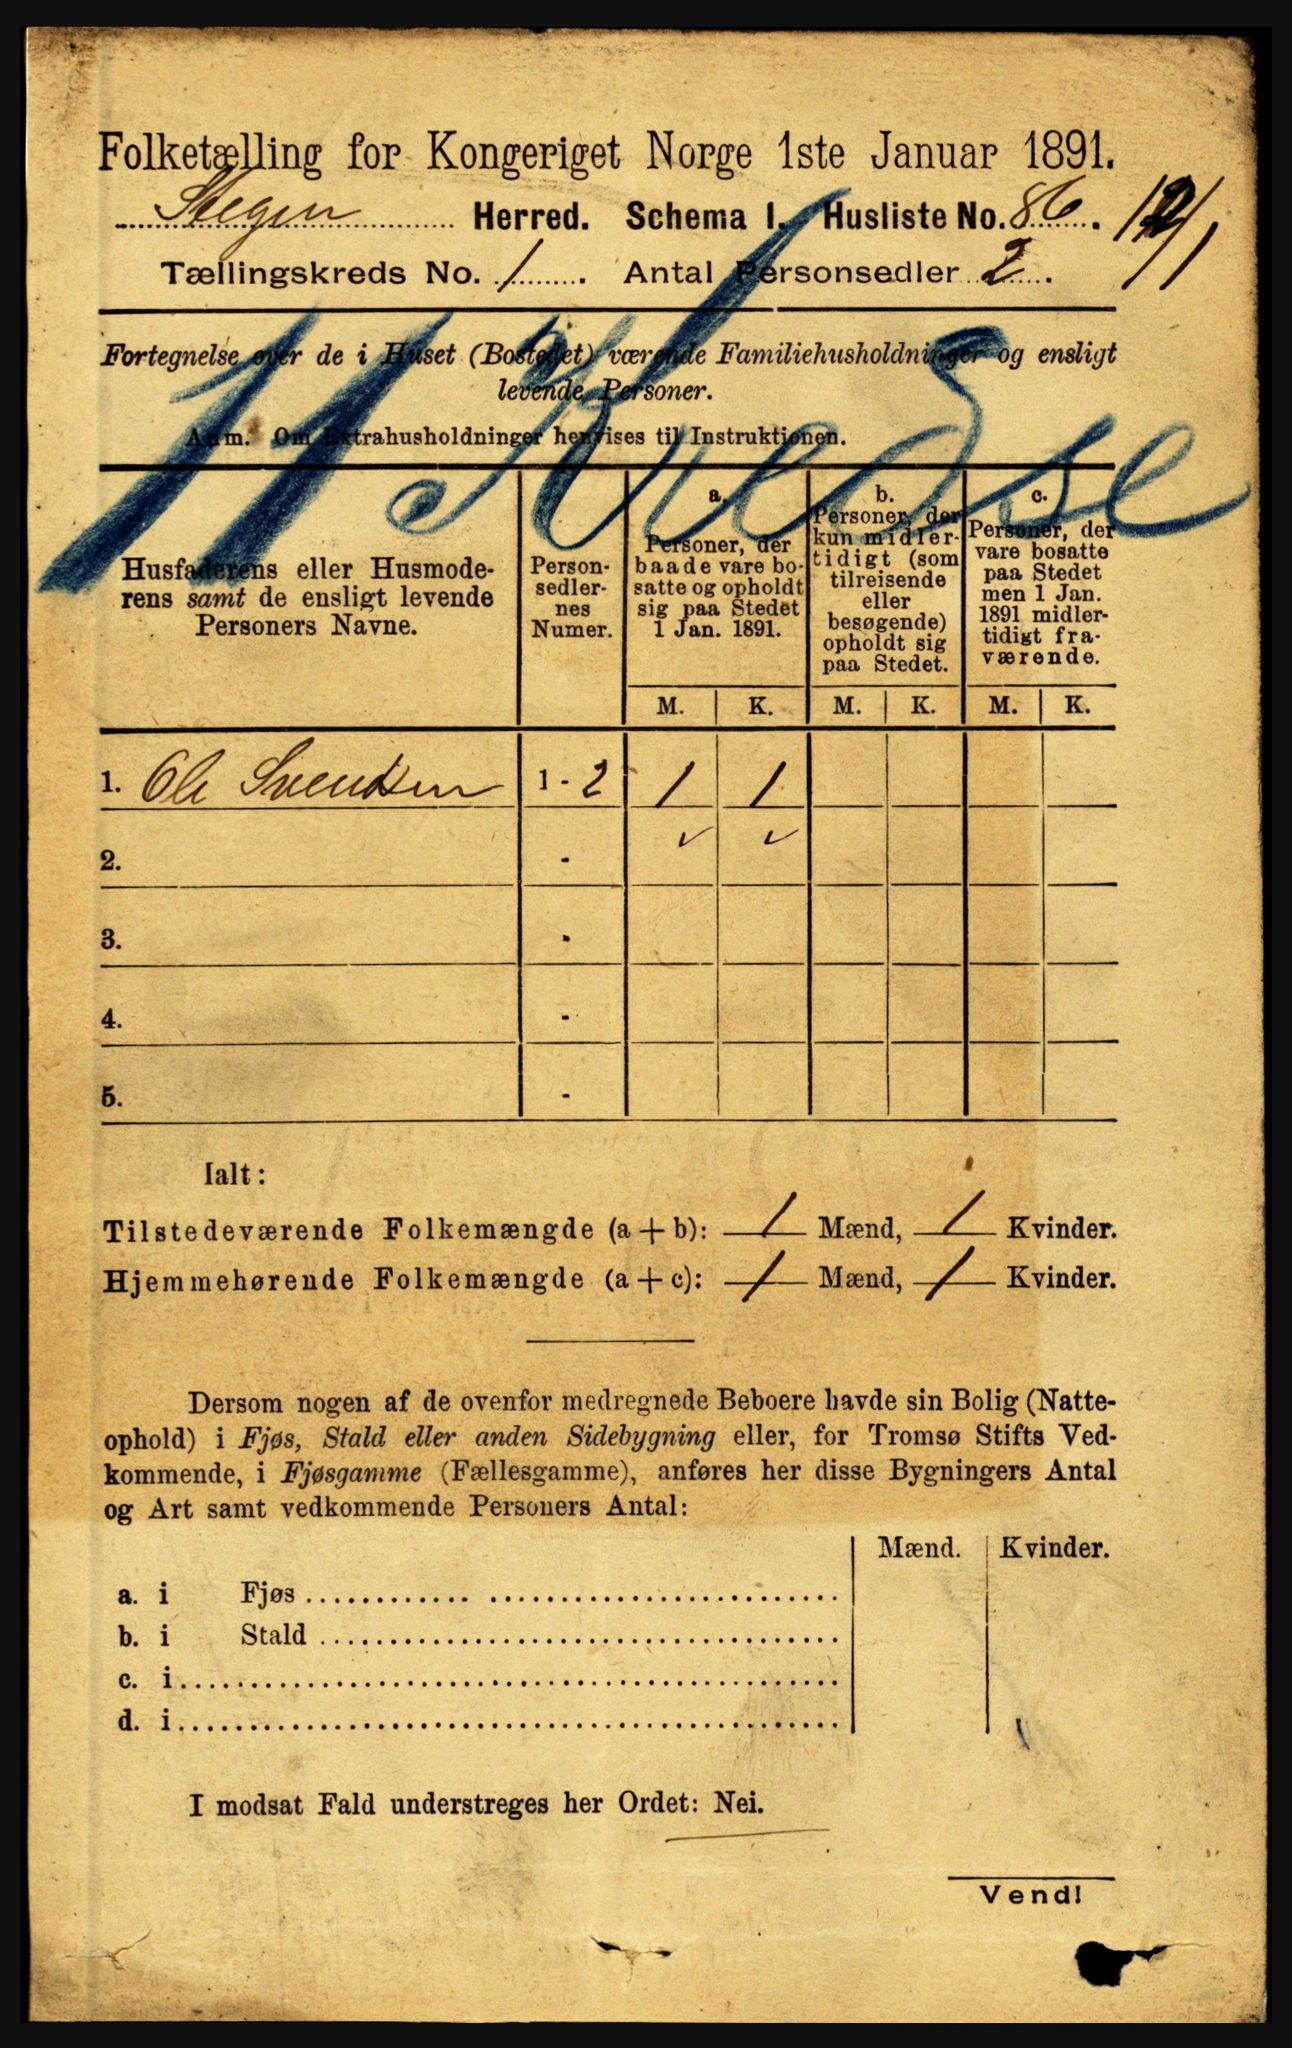 Folketælling for Kongeriget Norge 1ste Januar 1891.
Stegen Herred. Schema I. Husliste No. 86.
Tællingskreds No. 1. Antal Personsedler 2.
Fortegnelse over de i Huset (Bostedet) værende Familiehusholdninger og ensligt
levende Personer.
Anm. Om Extrahusholdninger henvises til Instruktionen.
Husfaderens eller Husmode-
rens samt de ensligt levende
Personers Navne.
Person-
sedler-
nes
Numer.
a.
Personer, der
baade vare bo-
satte og opholdt
sig paa Stedet
1 Jan. 1891.
b.
Personer, der
kun midler-
tidigt (som
tilreisende
eller
besøgende)
opholdt sig
paa Stedet.
c.
Personer, der
vare bosatte
paa Stedet
men 1 Jan.
1891 midler-
tidigt fra-
værende.
M. K. M. K. M. K.
1. Ole Svendsen 1 - 2 1 1
2. -
3. -
4. -
5. -
Ialt:
Tilstedeværende Folkemængde (a + b): 1 Mænd, 1 Kvinder.
Hjemmehørende Folkemængde (a + c): 1 Mænd, 1 Kvinder.
Dersom nogen af de ovenfor medregnede Beboere havde sin Bolig (Natte-
ophold) i Fjøs, Stald eller anden Sidebygning eller, for Tromsø Stifts Ved-
kommende, i Fjøsgamme (Fællesgamme), anføres her disse Bygningers Antal
og Art samt vedkommende Personers Antal:
Mænd. Kvinder.
a. i Fjøs
b. i Stald
c. i
d. i
I modsat Fald understreges her Ordet: Nei.
Vend!